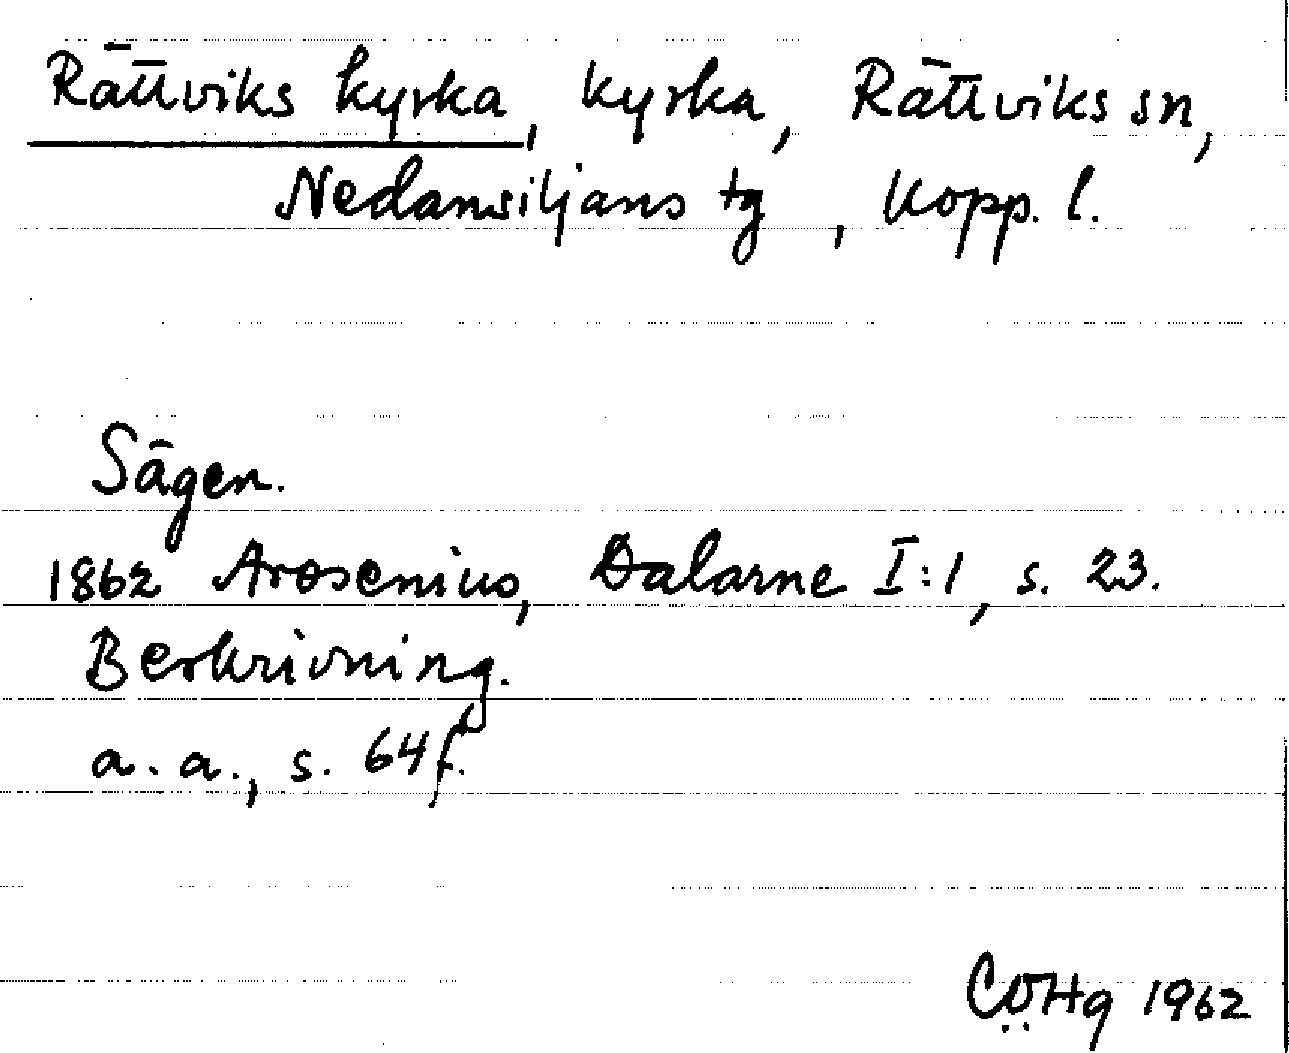 Rättviks kyrka, kyrka, Rättviks sn,
Nedansiljans tg, Kopp. l.
Sägen.
1862 Arosenius, Dalarne I:1, s. 23.
Beskrivning.
a. a., s. 64 f.
CÖHg 1962